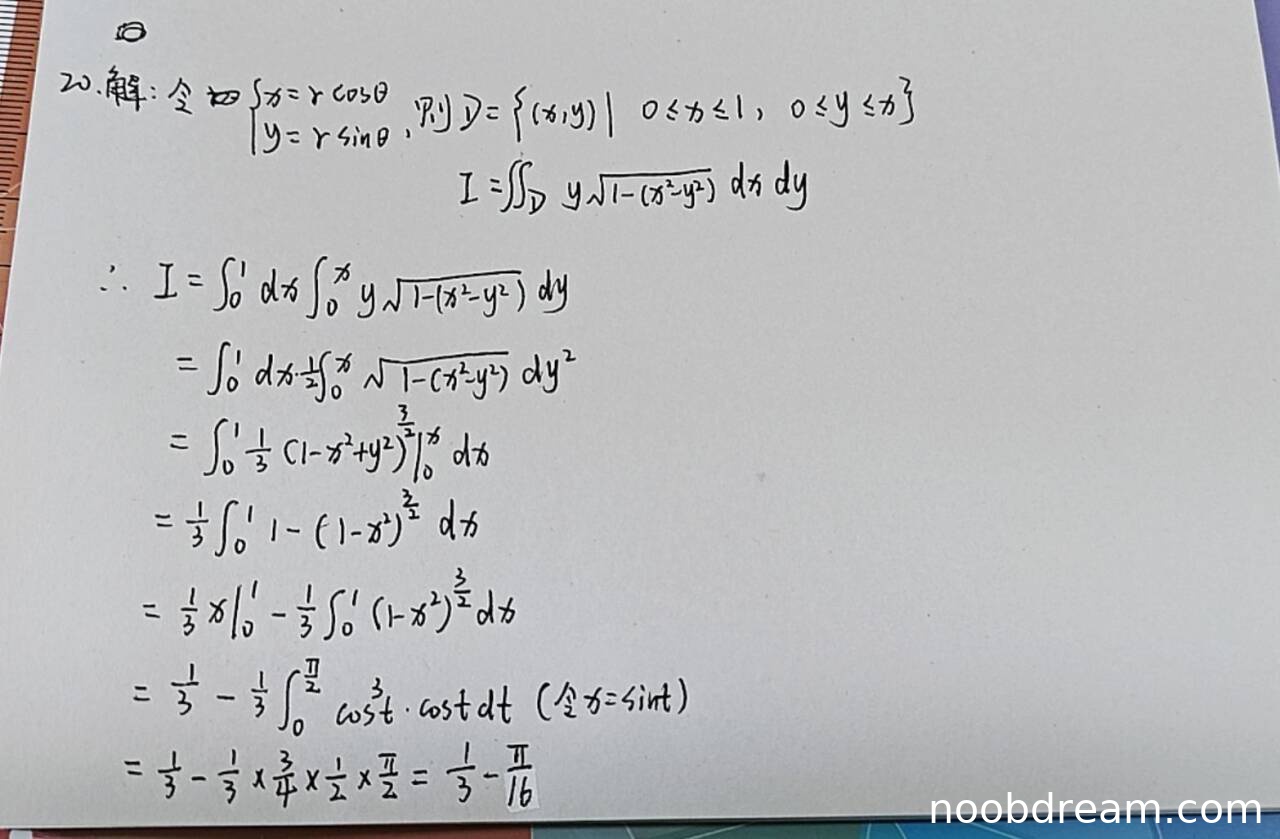 20.解:令 {x=r cosθ
y=r sinθ ,则 D={(x,y)| 0≤x≤1, 0≤y≤x}
I=∬_D y√(1-(x²-y²)) dx dy
∴ I=∫₀¹ dx ∫₀ˣ y√(1-(x²-y²)) dy
=∫₀¹ dx·½∫₀ˣ √(1-(x²-y²)) dy²
=∫₀¹ ⅓ (1-x²+y²)^(3/2) |₀ˣ dx
=⅓∫₀¹ 1-(1-x²)^(3/2) dx
=⅓ x|₀¹ - ⅓∫₀¹ (1-x²)^(3/2) dx
=⅓ - ⅓∫₀^(π/2) cos³t·cost dt (令x=sint)
=⅓ - ⅓×¾×½×π/2 = ⅓ - π/16
noobdream.com